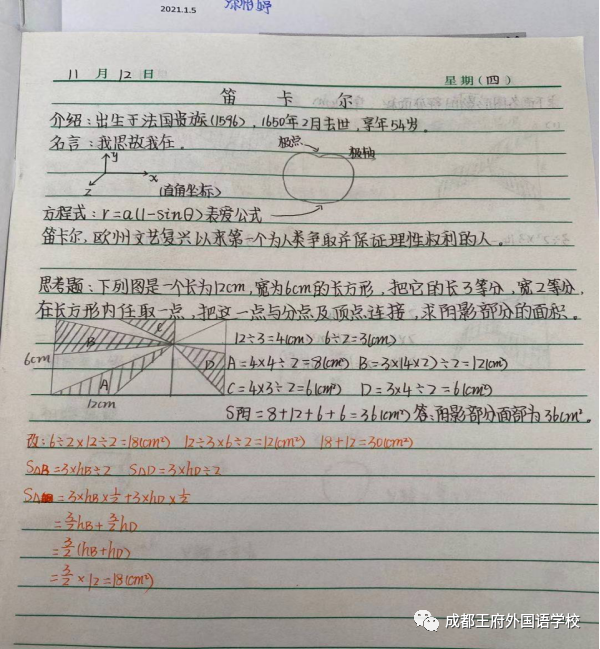 2021.1.5
11 月 12 日 星期(四)
笛 卡 尔
介绍:出生于法国贵族(1596),1650年2月去世,享年54岁。
名言:我思故我在。
极点
极轴
y
x
z
(直角坐标)
方程式:r=a(1-sinθ)表爱公式
笛卡尔,欧州文艺复兴以来第一个为人类争取并保证理性权利的人。
思考题:下列图是一个长为12cm,宽为6cm的长方形,把它的长3等分,宽2等分,
在长方形内任取一点,把这一点与分点及顶点连接,求阴影部分的面积。
6cm
12cm
A
B
C
D
12÷3=4(cm) 6÷2=3(cm)
A=4×4÷2=8(cm²) B=3×(4×2)÷2=12(cm²)
C=4×3÷2=6(cm²) D=3×4÷2=6(cm²)
S阴=8+12+6+6=36(cm²) 答:阴影部分面部为36cm²。
改:6÷2×12÷2=18(cm²) 12÷3×6÷2=12(cm²) 18+12=30(cm²)
S△B=3×hB÷2 S△D=3×hD÷2
=3×hB×1/2+3×hD×1/2
=3/2hB+3/2hD
=3/2(hB+hD)
=3/2×12=18(cm²)
成都王府外国语学校